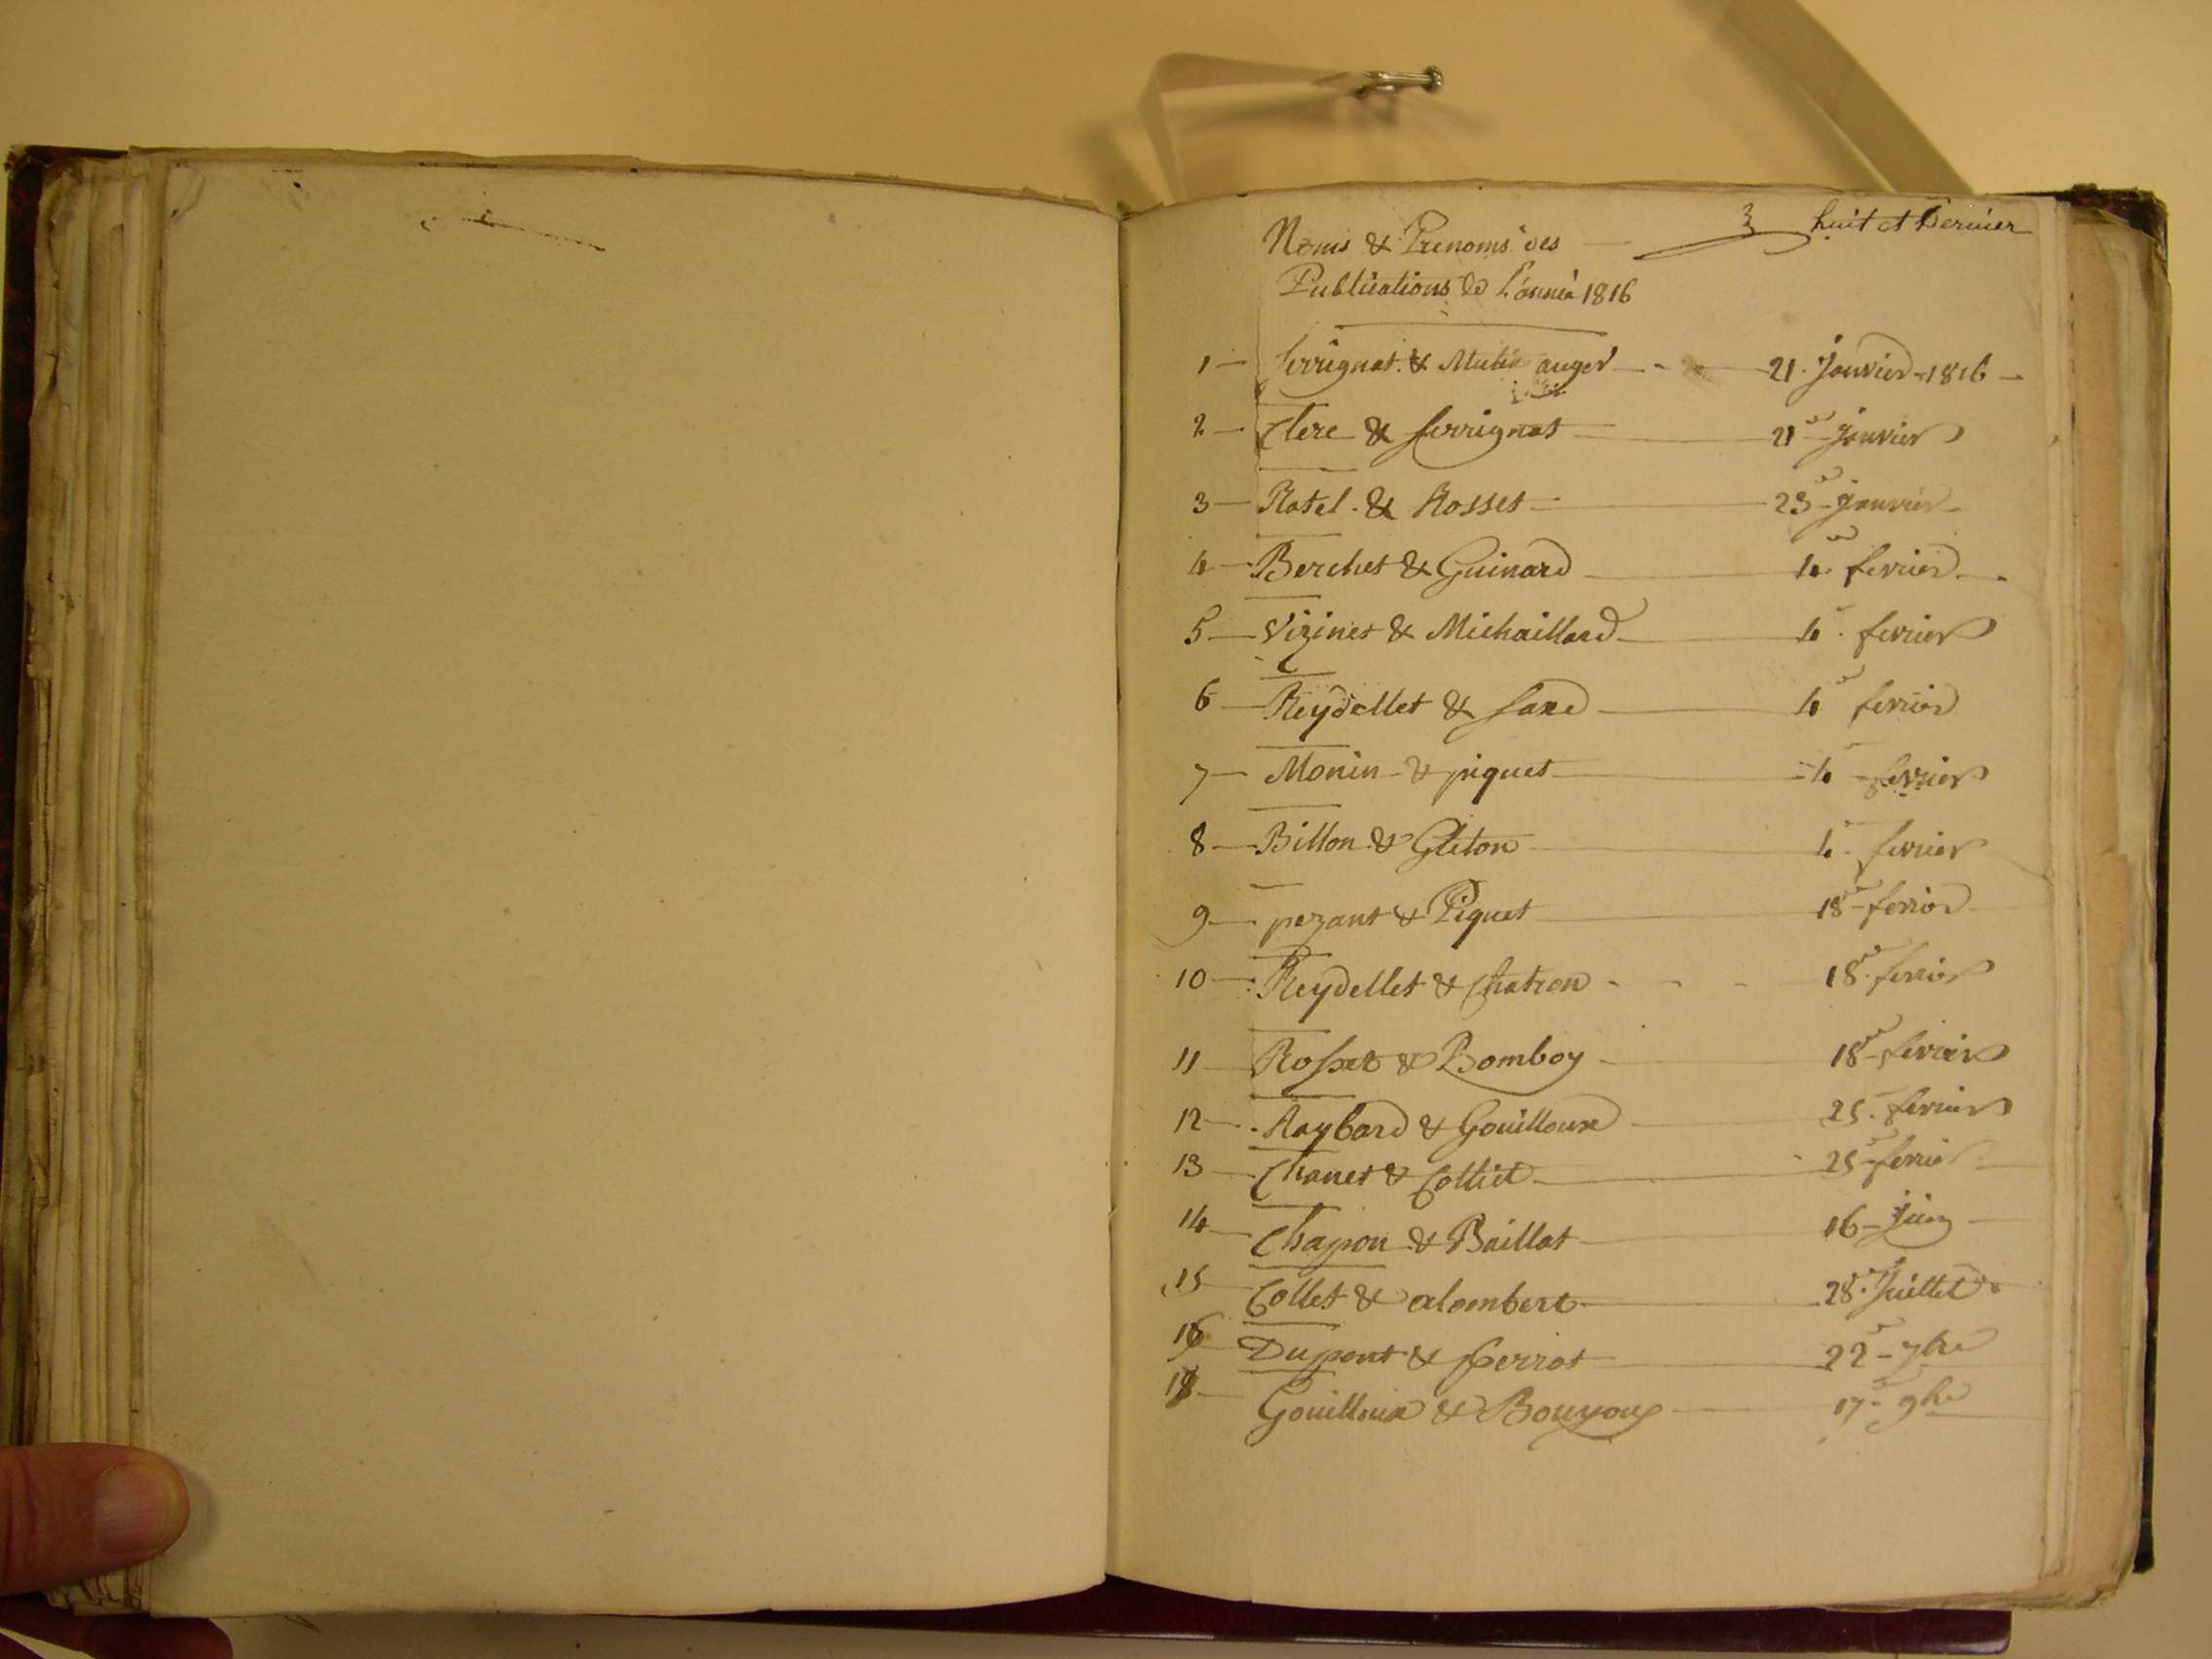 3 huit et Dernier
Noms & Prenoms des
Publications de L'année 1816
1 — Serrignat & auger — 21 Janvier 1816 —
2 — Clerc & Serrignat — 21 Janvier
3 — Ratel & Rosset — 23 Janvier
4 — Berchet & Guinard — 4 fevrier
5 — Vizinet & Michaillard — 4 fevrier
6 — Reydellet & — 4 fevrier
7 — Monin & piquet — 4 fevrier
8 — Billon & Gleton — 4 fevrier
9 — pezant & Piquet — 18 fevrier
10 — Reydellet & Chatron - - - 18 fevrier
11 — Rosset & Bomboy — 18 fevrier
12 — Raybard & Gouilloux — 25 fevrier
13 — Chanet & Colliet — 25 fevrier
14 — Chapon & Baillat — 16 Juin
15 — Collet & alombert — 28 Juillet
16 — Dupont & perrat — 22 7bre
— Gouilloux & — 17 9bre